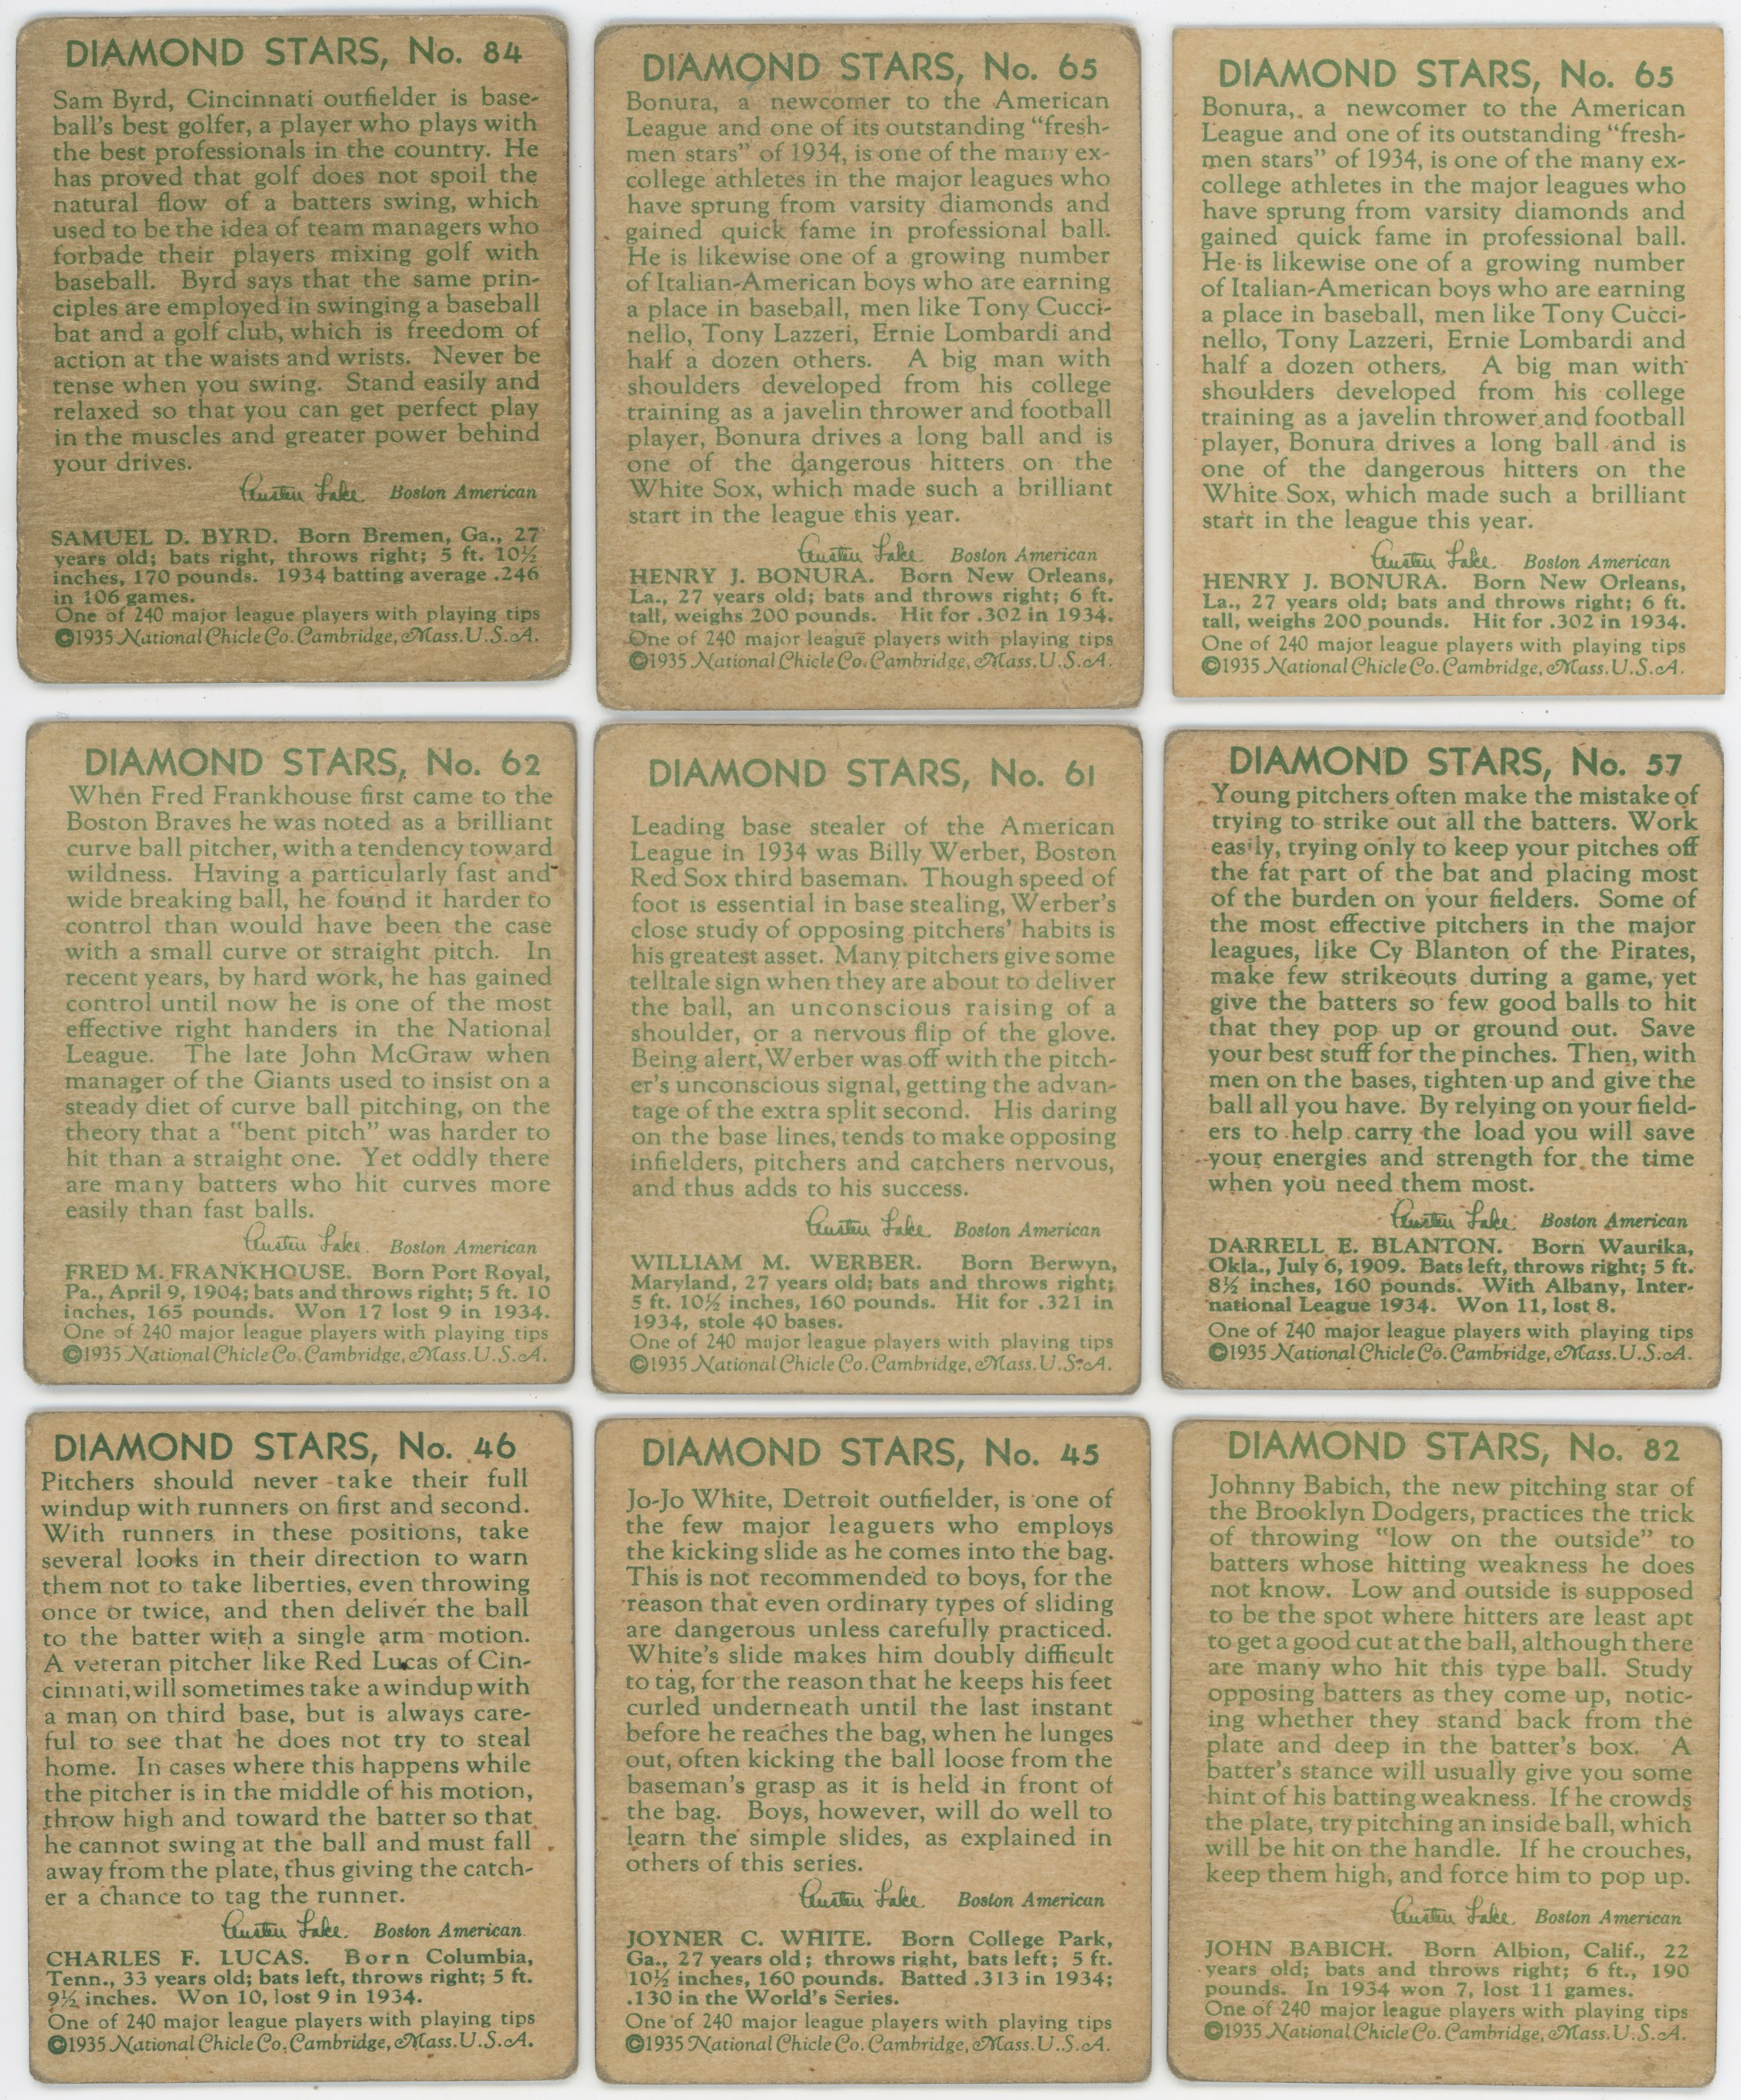 DIAMOND STARS, No. 84
Sam Byrd, Cincinnati outfielder is base-
ball's best golfer, a player who plays with
the best professionals in the country. He
has proved that golf does not spoil the
natural flow of a batters swing, which
used to be the idea of team managers who
forbade their players mixing golf with
baseball. Byrd says that the same prin-
ciples are employed in swinging a baseball
bat and a golf club, which is freedom of
action at the waists and wrists. Never be
tense when you swing. Stand easily and
relaxed so that you can get perfect play
in the muscles and greater power behind
your drives.
Austen Lake. Boston American
SAMUEL D. BYRD. Born Bremen, Ga., 27
years old; bats right, throws right; 5 ft. 10½
inches, 170 pounds. 1934 batting average .246
in 106 games.
One of 240 major league players with playing tips
©1935 National Chicle Co. Cambridge, Mass. U.S.A.
DIAMOND STARS, No. 65
Bonura, a newcomer to the American
League and one of its outstanding "fresh-
men stars" of 1934, is one of the many ex-
college athletes in the major leagues who
have sprung from varsity diamonds and
gained quick fame in professional ball.
He is likewise one of a growing number
of Italian-American boys who are earning
a place in baseball, men like Tony Cucci-
nello, Tony Lazzeri, Ernie Lombardi and
half a dozen others. A big man with
shoulders developed from his college
training as a javelin thrower and football
player, Bonura drives a long ball and is
one of the dangerous hitters on the
White Sox, which made such a brilliant
start in the league this year.
Austen Lake. Boston American
HENRY J. BONURA. Born New Orleans,
La., 27 years old; bats and throws right; 6 ft.
tall, weighs 200 pounds. Hit for .302 in 1934.
One of 240 major league players with playing tips
©1935 National Chicle Co. Cambridge, Mass. U.S.A.
DIAMOND STARS, No. 65
Bonura, a newcomer to the American
League and one of its outstanding "fresh-
men stars" of 1934, is one of the many ex-
college athletes in the major leagues who
have sprung from varsity diamonds and
gained quick fame in professional ball.
He is likewise one of a growing number
of Italian-American boys who are earning
a place in baseball, men like Tony Cucci-
nello, Tony Lazzeri, Ernie Lombardi and
half a dozen others. A big man with
shoulders developed from his college
training as a javelin thrower and football
player, Bonura drives a long ball and is
one of the dangerous hitters on the
White Sox, which made such a brilliant
start in the league this year.
Austen Lake. Boston American
HENRY J. BONURA. Born New Orleans,
La., 27 years old; bats and throws right; 6 ft.
tall, weighs 200 pounds. Hit for .302 in 1934.
One of 240 major league players with playing tips
©1935 National Chicle Co. Cambridge, Mass. U.S.A.
DIAMOND STARS, No. 62
When Fred Frankhouse first came to the
Boston Braves he was noted as a brilliant
curve ball pitcher, with a tendency toward
wildness. Having a particularly fast and
wide breaking ball, he found it harder to
control than would have been the case
with a small curve or straight pitch. In
recent years, by hard work, he has gained
control until now he is one of the most
effective right handers in the National
League. The late John McGraw when
manager of the Giants used to insist on a
steady diet of curve ball pitching, on the
theory that a "bent pitch" was harder to
hit than a straight one. Yet oddly there
are many batters who hit curves more
easily than fast balls.
Austen Lake. Boston American
FRED M. FRANKHOUSE. Born Port Royal,
Pa., April 9, 1904; bats and throws right; 5 ft. 10
inches, 165 pounds. Won 17 lost 9 in 1934.
One of 240 major league players with playing tips
©1935 National Chicle Co. Cambridge, Mass. U.S.A.
DIAMOND STARS, No. 61
Leading base stealer of the American
League in 1934 was Billy Werber, Boston
Red Sox third baseman. Though speed of
foot is essential in base stealing, Werber's
close study of opposing pitchers' habits is
his greatest asset. Many pitchers give some
telltale sign when they are about to deliver
the ball, an unconscious raising of a
shoulder, or a nervous flip of the glove.
Being alert, Werber was off with the pitch-
er's unconscious signal, getting the advan-
tage of the extra split second. His daring
on the base lines, tends to make opposing
infielders, pitchers and catchers nervous,
and thus adds to his success.
Austen Lake. Boston American
WILLIAM M. WERBER. Born Berwyn,
Maryland, 27 years old; bats and throws right;
5 ft. 10½ inches, 160 pounds. Hit for .321 in
1934, stole 40 bases.
One of 240 major league players with playing tips
©1935 National Chicle Co. Cambridge, Mass. U.S.A.
DIAMOND STARS, No. 57
Young pitchers often make the mistake of
trying to strike out all the batters. Work
easily, trying only to keep your pitches off
the fat part of the bat and placing most
of the burden on your fielders. Some of
the most effective pitchers in the major
leagues, like Cy Blanton of the Pirates,
make few strikeouts during a game, yet
give the batters so few good balls to hit
that they pop up or ground out. Save
your best stuff for the pinches. Then, with
men on the bases, tighten up and give the
ball all you have. By relying on your field-
ers to help carry the load you will save
your energies and strength for the time
when you need them most.
Austen Lake. Boston American
DARRELL E. BLANTON. Born Waurika,
Okla., July 6, 1909. Bats left, throws right; 5 ft.
8½ inches, 160 pounds. With Albany, Inter-
national League 1934. Won 11, lost 8.
One of 240 major league players with playing tips
©1935 National Chicle Co. Cambridge, Mass. U.S.A.
DIAMOND STARS, No. 46
Pitchers should never take their full
windup with runners on first and second.
With runners in these positions, take
several looks in their direction to warn
them not to take liberties, even throwing
once or twice, and then deliver the ball
to the batter with a single arm motion.
A veteran pitcher like Red Lucas of Cin-
cinnati, will sometimes take a windup with
a man on third base, but is always care-
ful to see that he does not try to steal
home. In cases where this happens while
the pitcher is in the middle of his motion,
throw high and toward the batter so that
he cannot swing at the ball and must fall
away from the plate, thus giving the catch-
er a chance to tag the runner.
Austen Lake. Boston American
CHARLES F. LUCAS. Born Columbia,
Tenn., 33 years old; bats left, throws right; 5 ft.
9½ inches. Won 10, lost 9 in 1934.
One of 240 major league players with playing tips
©1935 National Chicle Co. Cambridge, Mass. U.S.A.
DIAMOND STARS, No. 45
Jo-Jo White, Detroit outfielder, is one of
the few major leaguers who employs
the kicking slide as he comes into the bag.
This is not recommended to boys, for the
reason that even ordinary types of sliding
are dangerous unless carefully practiced.
White's slide makes him doubly difficult
to tag, for the reason that he keeps his feet
curled underneath until the last instant
before he reaches the bag, when he lunges
out, often kicking the ball loose from the
baseman's grasp as it is held in front of
the bag. Boys, however, will do well to
learn the simple slides, as explained in
others of this series.
Austen Lake. Boston American
JOYNER C. WHITE. Born College Park,
Ga., 27 years old; throws right, bats left; 5 ft.
10½ inches, 160 pounds. Batted .313 in 1934;
.130 in the World's Series.
One of 240 major league players with playing tips
©1935 National Chicle Co. Cambridge, Mass. U.S.A.
DIAMOND STARS, No. 82
Johnny Babich, the new pitching star of
the Brooklyn Dodgers, practices the trick
of throwing "low on the outside" to
batters whose hitting weakness he does
not know. Low and outside is supposed
to be the spot where hitters are least apt
to get a good cut at the ball, although there
are many who hit this type ball. Study
opposing batters as they come up, notic-
ing whether they stand back from the
plate and deep in the batter's box. A
batter's stance will usually give you some
hint of his batting weakness. If he crowds
the plate, try pitching an inside ball, which
will be hit on the handle. If he crouches,
keep them high, and force him to pop up.
Austen Lake. Boston American
JOHN BABICH. Born Albion, Calif., 22
years old; bats and throws right; 6 ft., 190
pounds. In 1934 won 7, lost 11 games.
One of 240 major league players with playing tips
©1935 National Chicle Co. Cambridge, Mass. U.S.A.